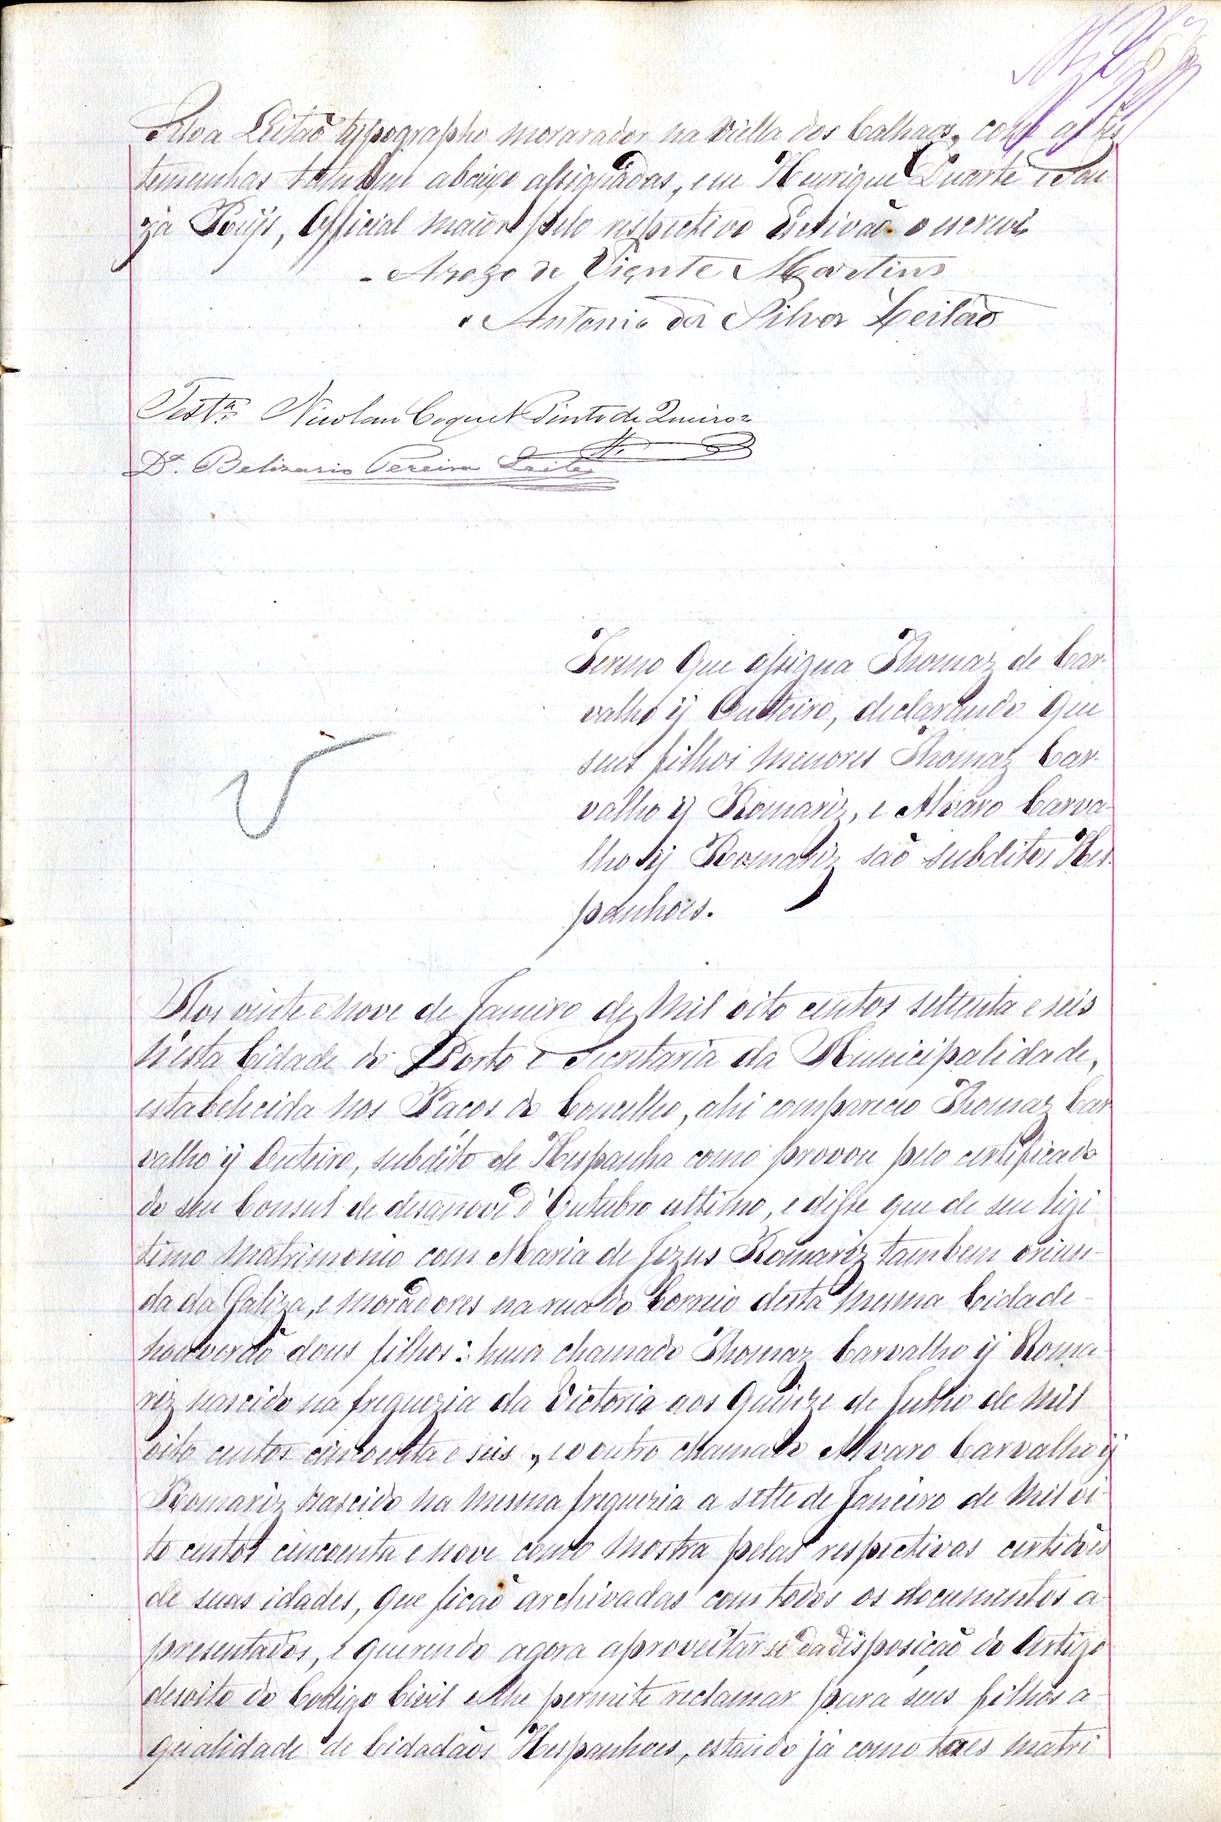 Silva Leitão typographo morarador na Viella dos Calhaos, com as tes
temunhas tambem abaixo assignadas, eu Henrique Duarte e Sou
za Reijs, Official maior pelo respectivo Escrivão o escrevi
Arogo de Vicente Martins
Antonio da Silva Leitão
Testª. Nicolau Coquet Pinto de Queiroz
Dª. Belizario Pereira Leite
Termo que assigna Thomaz de Car-
valho ÿ Outeiro, declarando que
seus filhos menores Thomaz Car-
valho ÿ Romariz, e Alvaro Carva-
lho ÿ Romariz são subditos Hes-
panhoes.
Aos vinte e nove de Janeiro de mil oito centos settenta e seis
n'esta Cidade do Porto e Secretaria da Municipalidade,
estabelecida nos Paços do Concelho, ahi compareceo Thomaz Car
valho ÿ Outeiro, subdito de Hespanha como provou pelo certificado
do seu Consul de desanove d'Outubro ultimo, e disse que de seu legi
timo matrimonio com Maria de Jezus Romariz tambem oriun-
da da Galiza, e moradores na rua do Correio desta mesma Cidade-
houverão dous filhos: hum chamado Thomaz Carvalho ÿ Roma-
riz nascido na freguezia da Victoria aos quinze de Julho de mil
oito centos cincoenta e seis, e o outro chamado Alvaro Carvalho ÿ
Romariz nascido na mesma freguezia a sette de Janeiro de mil oi-
to centos cincoenta e nove como mostra pelas respectivas certidões
de suas idades, que ficão archivadas com todos os documentos a-
presentados, e querendo agora aproveitar se da disposição do Artigo
desoito do Codigo Civil e lhe permite reclamar para seus filhos a-
qualidade de Cidadãos Hespanhoes, estando já como taes matri